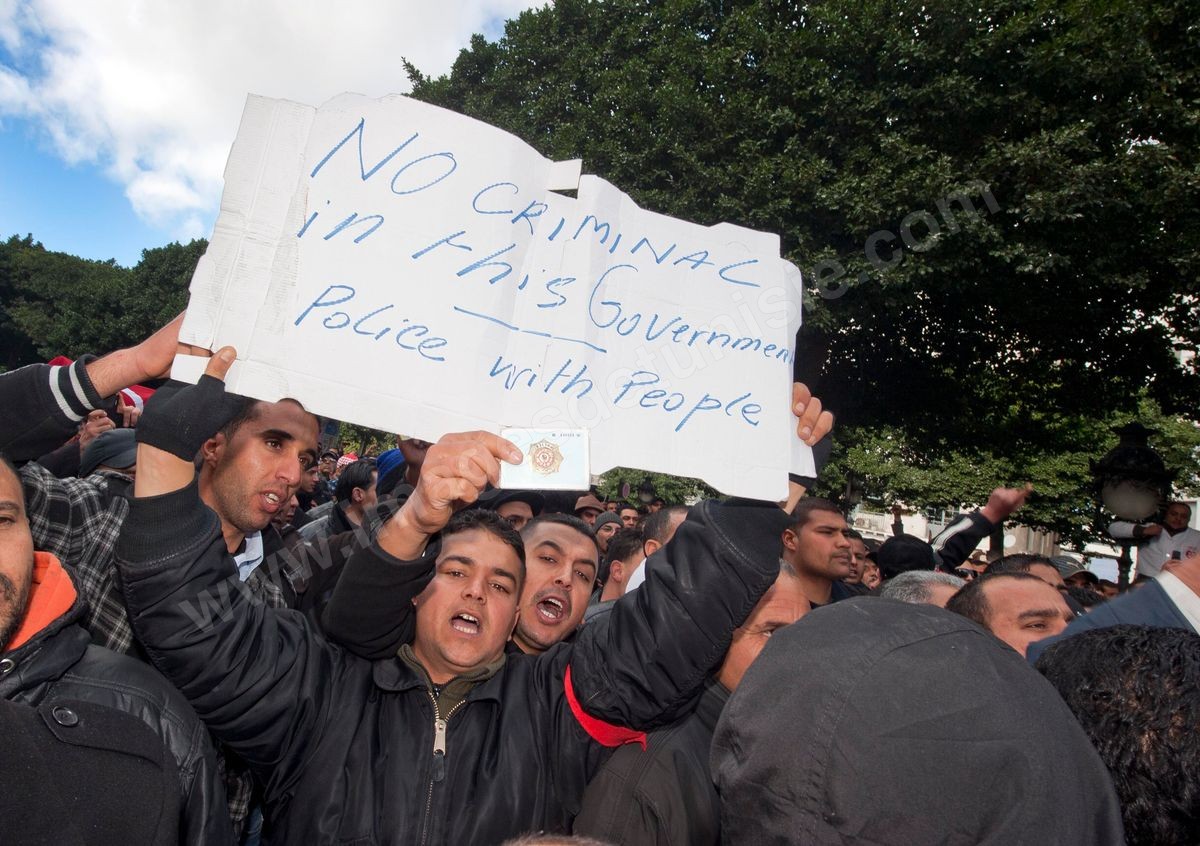 NO CRIMINAL
in this Governmen
Police with People